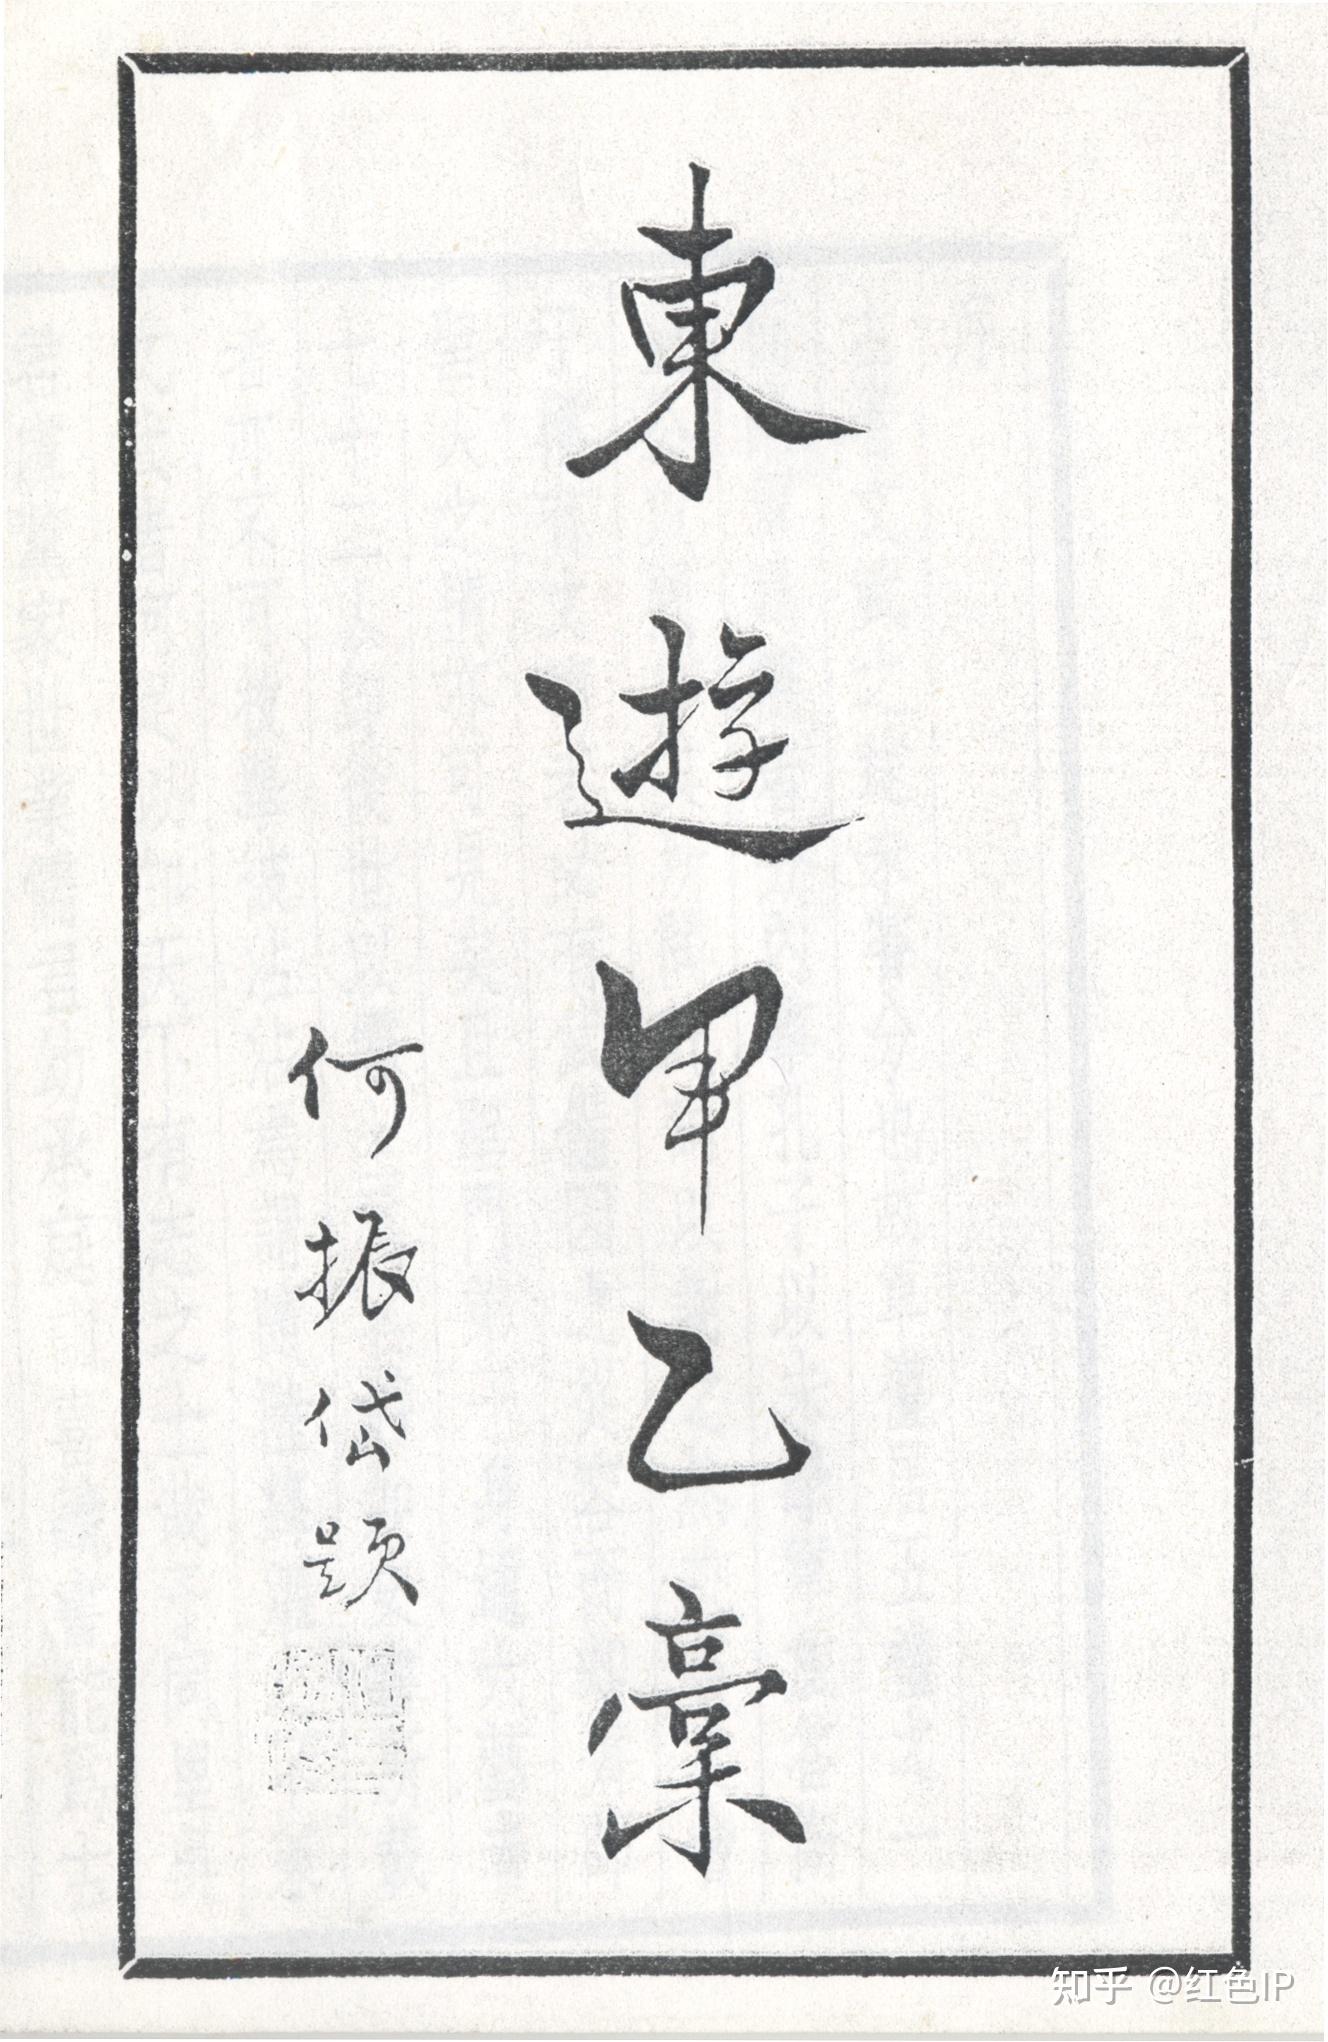 東遊甲乙稾
何振岱題
知乎 @红色IP